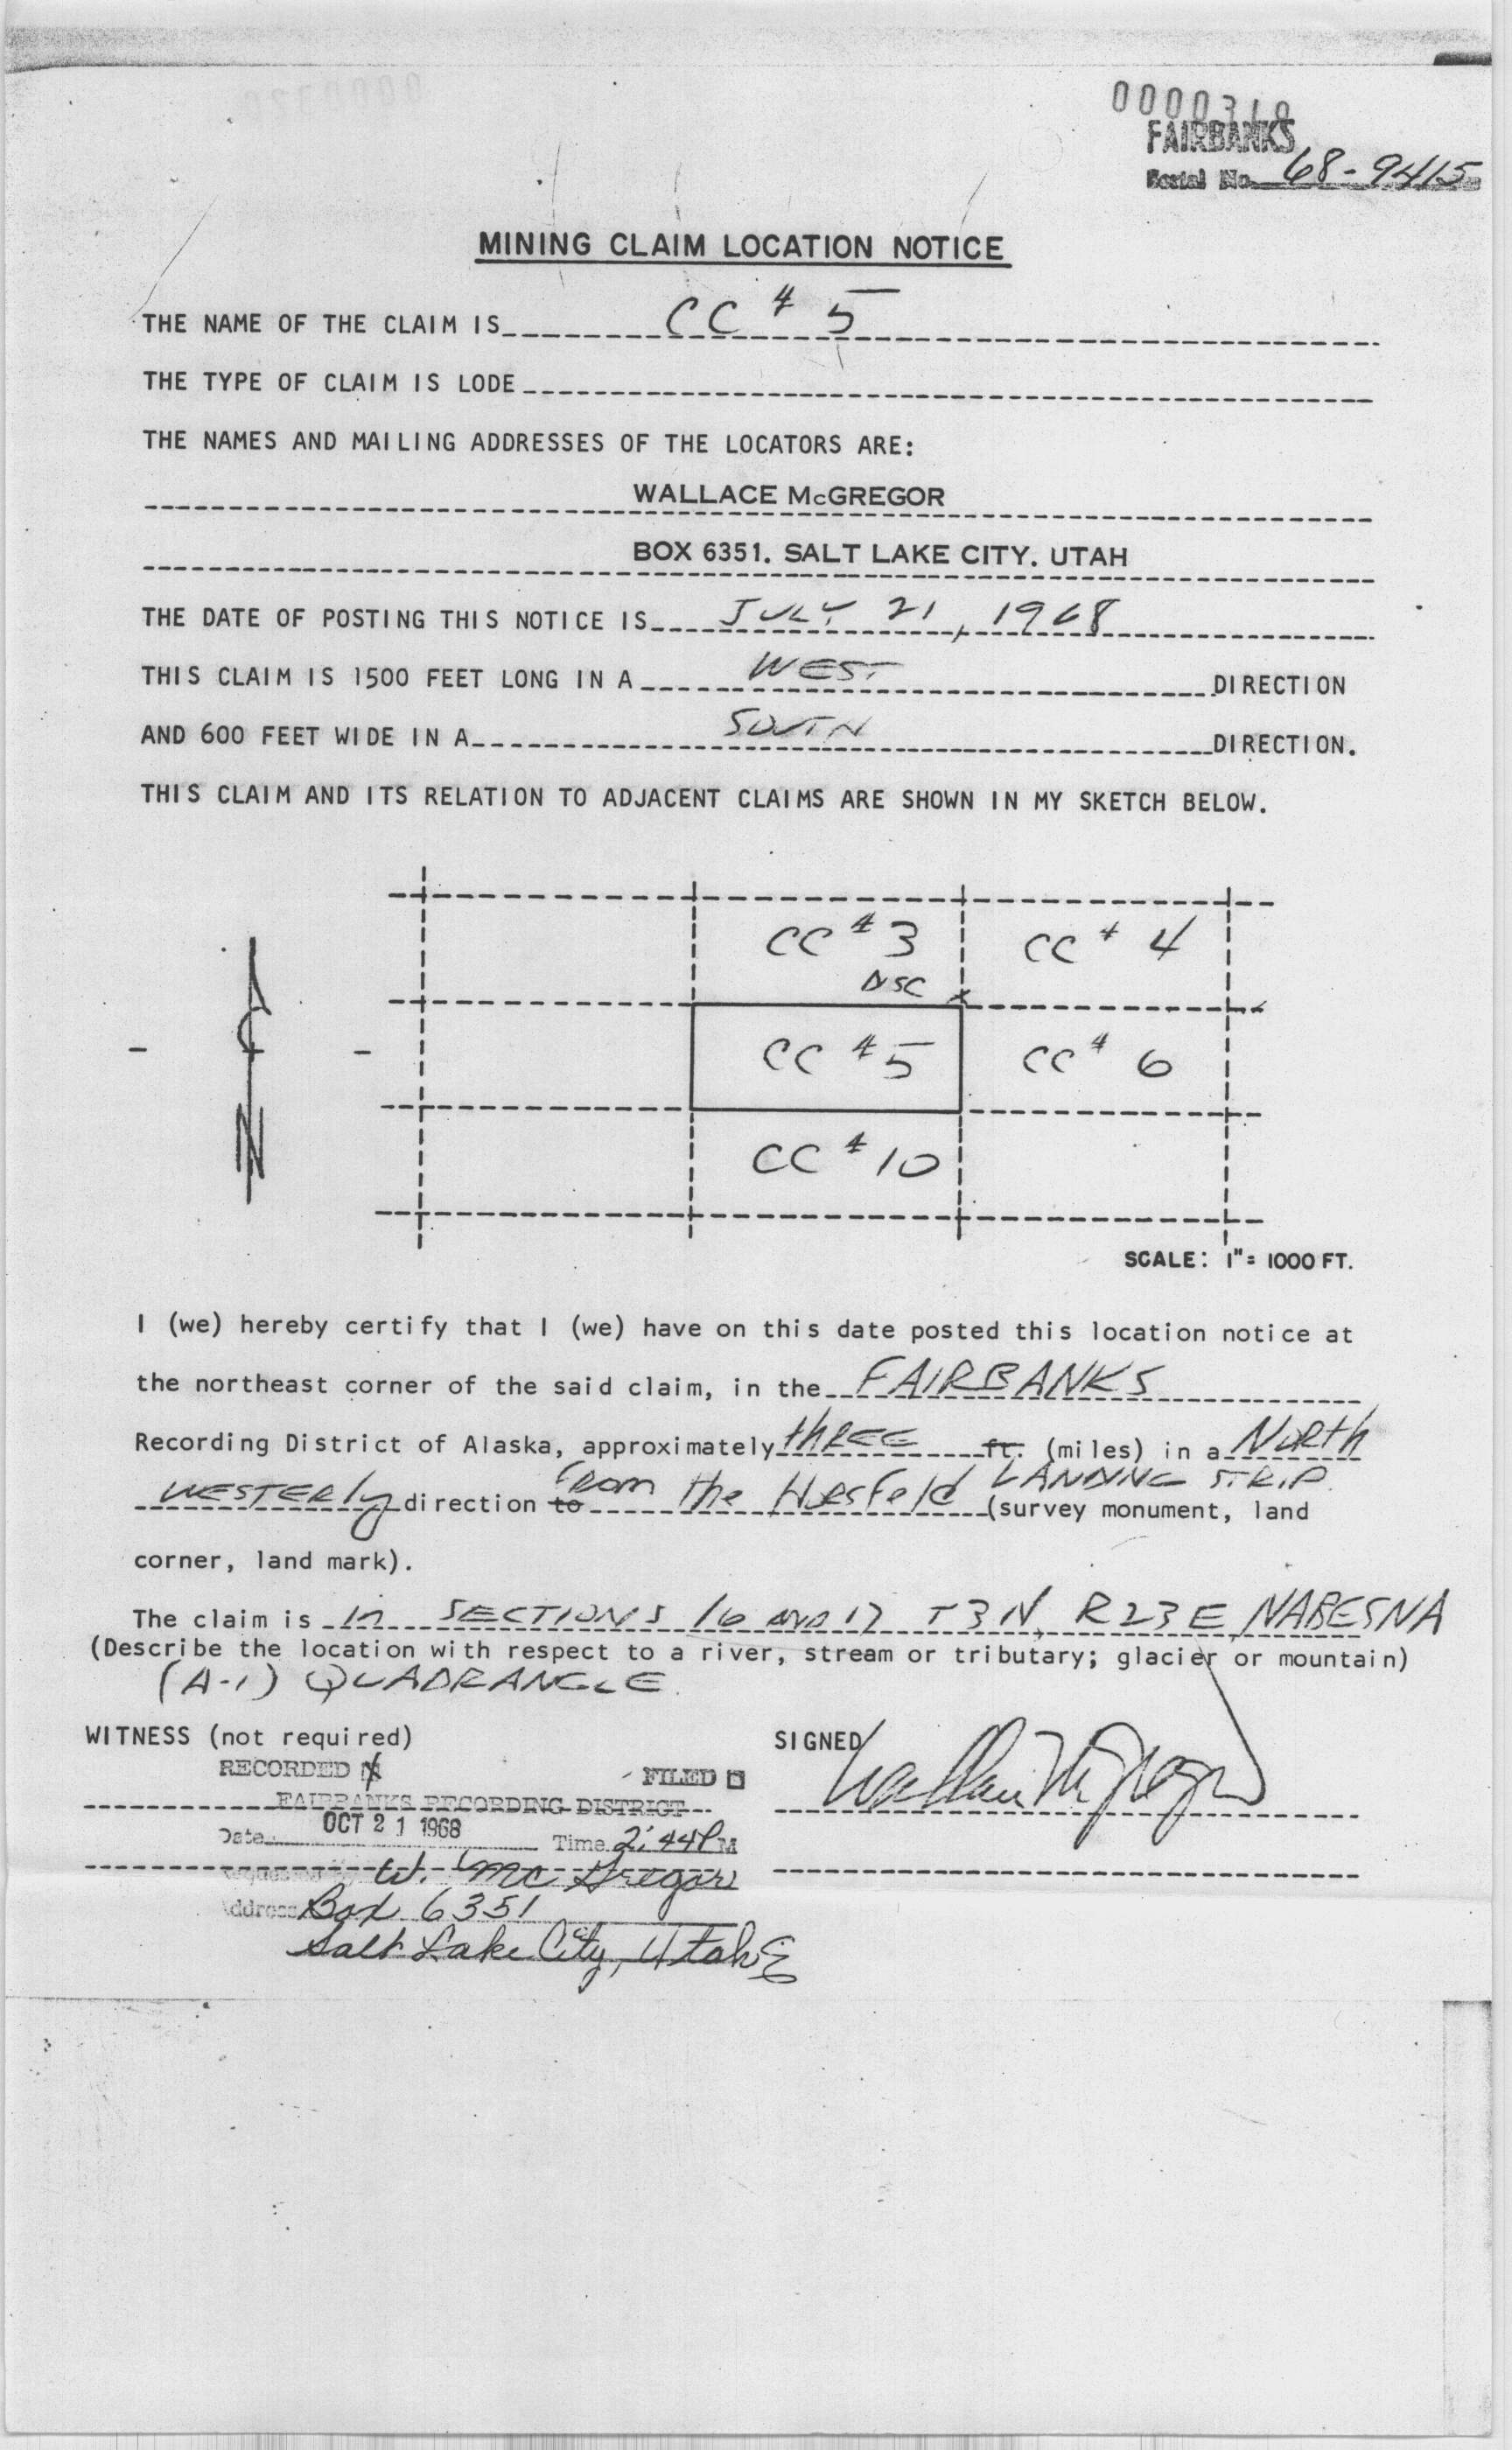 FAIRBANKS
Serial No. 68-9415
MINING CLAIM LOCATION NOTICE
THE NAME OF THE CLAIM IS CC # 5
THE TYPE OF CLAIM IS LODE
THE NAMES AND MAILING ADDRESSES OF THE LOCATORS ARE:
WALLACE McGREGOR
BOX 6351. SALT LAKE CITY. UTAH
THE DATE OF POSTING THIS NOTICE IS JULY 21, 1968
THIS CLAIM IS 1500 FEET LONG IN A WEST DIRECTION
AND 600 FEET WIDE IN A SOUTH DIRECTION.
THIS CLAIM AND ITS RELATION TO ADJACENT CLAIMS ARE SHOWN IN MY SKETCH BELOW.
CC # 3 CC # 4
DISC
CC # 5 CC # 6
N
CC # 10
SCALE: 1" = 1000 FT.
I (we) hereby certify that I (we) have on this date posted this location notice at
the northeast corner of the said claim, in the FAIRBANKS
Recording District of Alaska, approximately three ft. (miles) in a North
WESTERly direction to from the Horsfeld LANDING STRIP. (survey monument, land
corner, land mark).
The claim is in SECTIONS 16 AND 17 T3N, R23E NABESNA
(Describe the location with respect to a river, stream or tributary; glacier or mountain)
(A-1) QUADRANGLE.
WITNESS (not required) SIGNED Wallace McGregor
RECORDED FILED
FAIRBANKS RECORDING DISTRICT
Date OCT 21 1968 Time 2:44 P M
W. McGregor
Address Box 6351
Salt Lake City, Utah